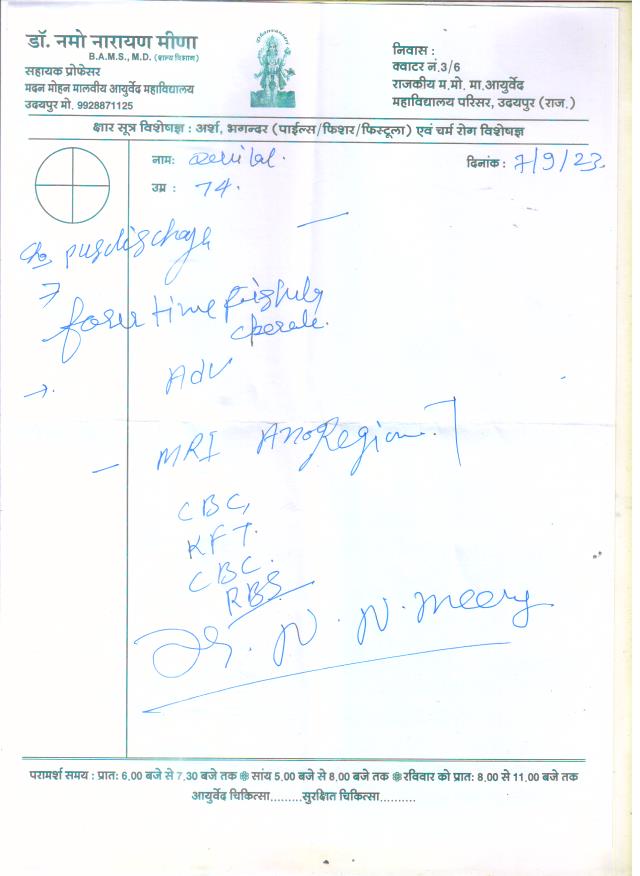 Dhanvantari
डॉ. नमो नारायण मीणा
B.A.M.S., M.D. (शल्य विज्ञान)
सहायक प्रोफेसर
मदन मोहन मालवीय आयुर्वेद महाविद्यालय
उदयपुर मो. 9928871125
निवास :
क्वाटर नं.3/6
राजकीय म.मो. मा.आयुर्वेद
महाविद्यालय परिसर, उदयपुर (राज.)
क्षार सूत्र विशेषज्ञ : अर्श, भगन्दर (पाईल्स/फिशर/फिस्टूला) एवं चर्म रोग विशेषज्ञ
नाम:
दिनांक : 7/9/23.
उम्र : 74.
pusdischage
four time
operate.
→. Adv
- MRI AnoRegion.
CBC,
KFT.
CBC.
RBS
Dr. N. N. Meena
परामर्श समय : प्रातः 6.00 बजे से 7.30 बजे तक ❁ सांय 5.00 बजे से 8.00 बजे तक ❁ रविवार को प्रातः 8.00 से 11.00 बजे तक
आयुर्वेद चिकित्सा.........सुरक्षित चिकित्सा..........